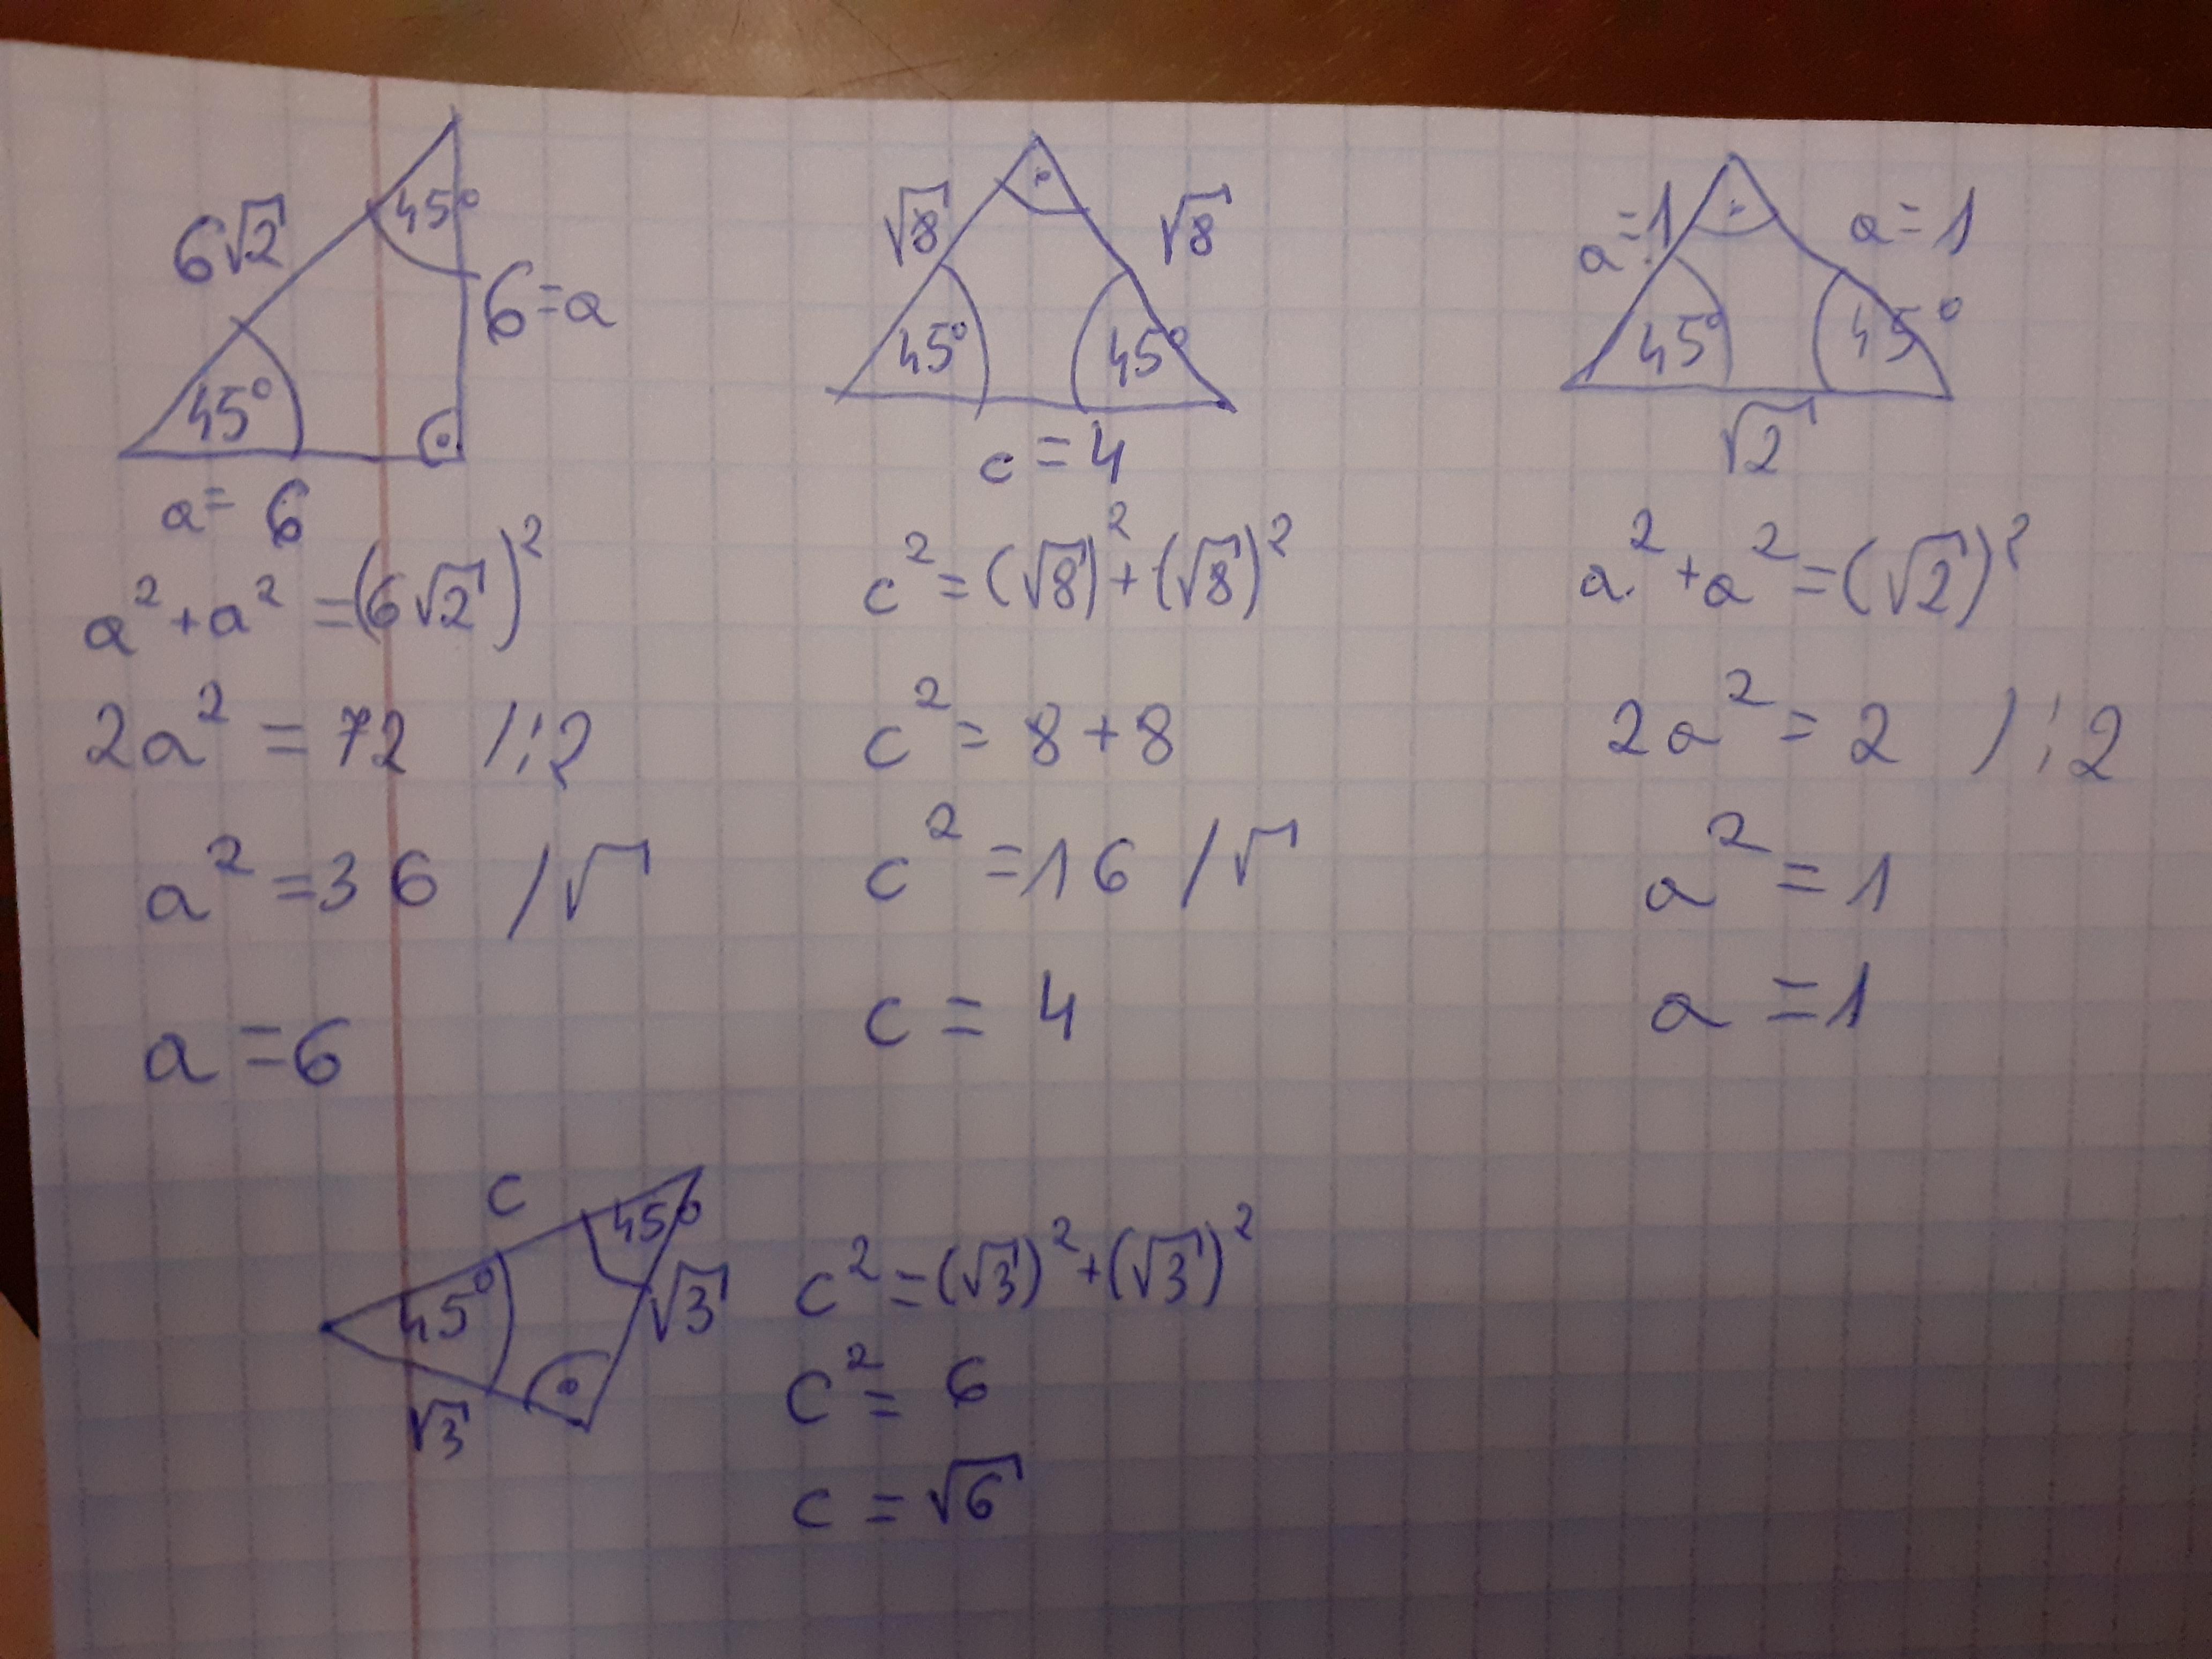 45°
6√2
6=a
45°
a=6
a²+a²=(6√2)²
2a²=72 /:2
a²=36 /√
a=6
√8 √8
45° 45°
c=4
c²=(√8)²+(√8)²
c²=8+8
c²=16 /√
c=4
a=1 a=1
45° 45°
√2
a²+a²=(√2)²
2a²=2 /:2
a²=1
a=1
c
45°
45°
√3
√3
c²=(√3)²+(√3)²
c²=6
c=√6